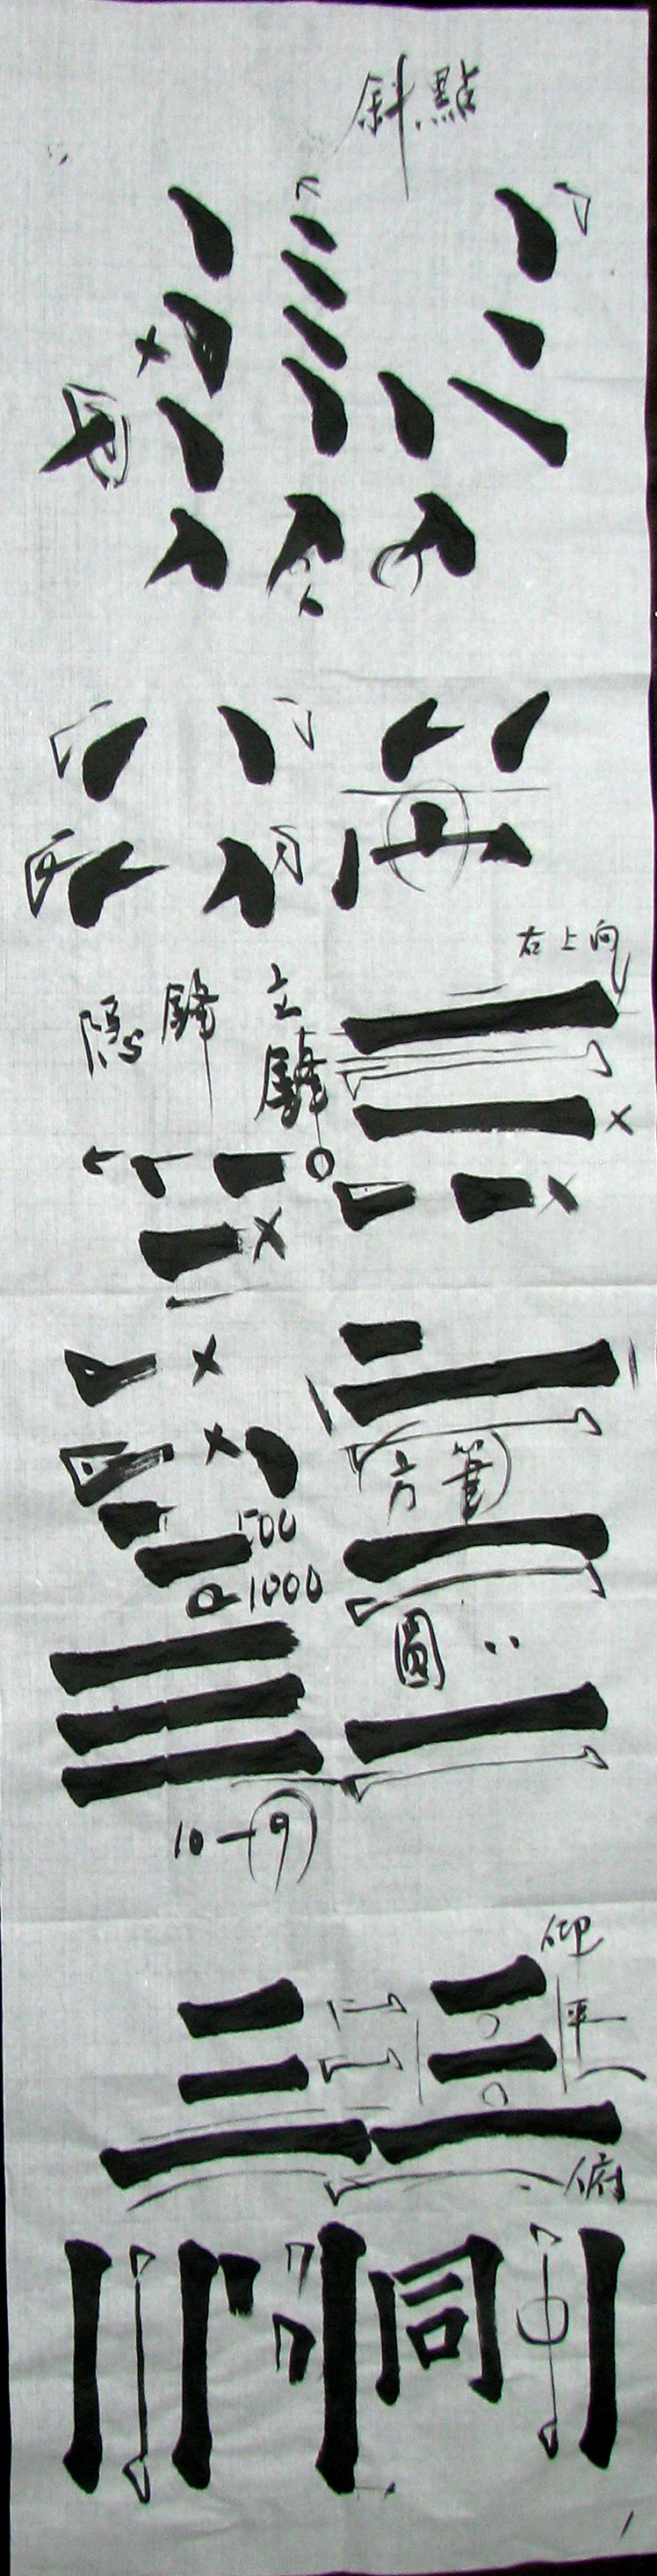 斜點
右上向
立鋒
隱鋒
方筆
圓
500
1000
10一9
三
仰
平
三
俯
同
中